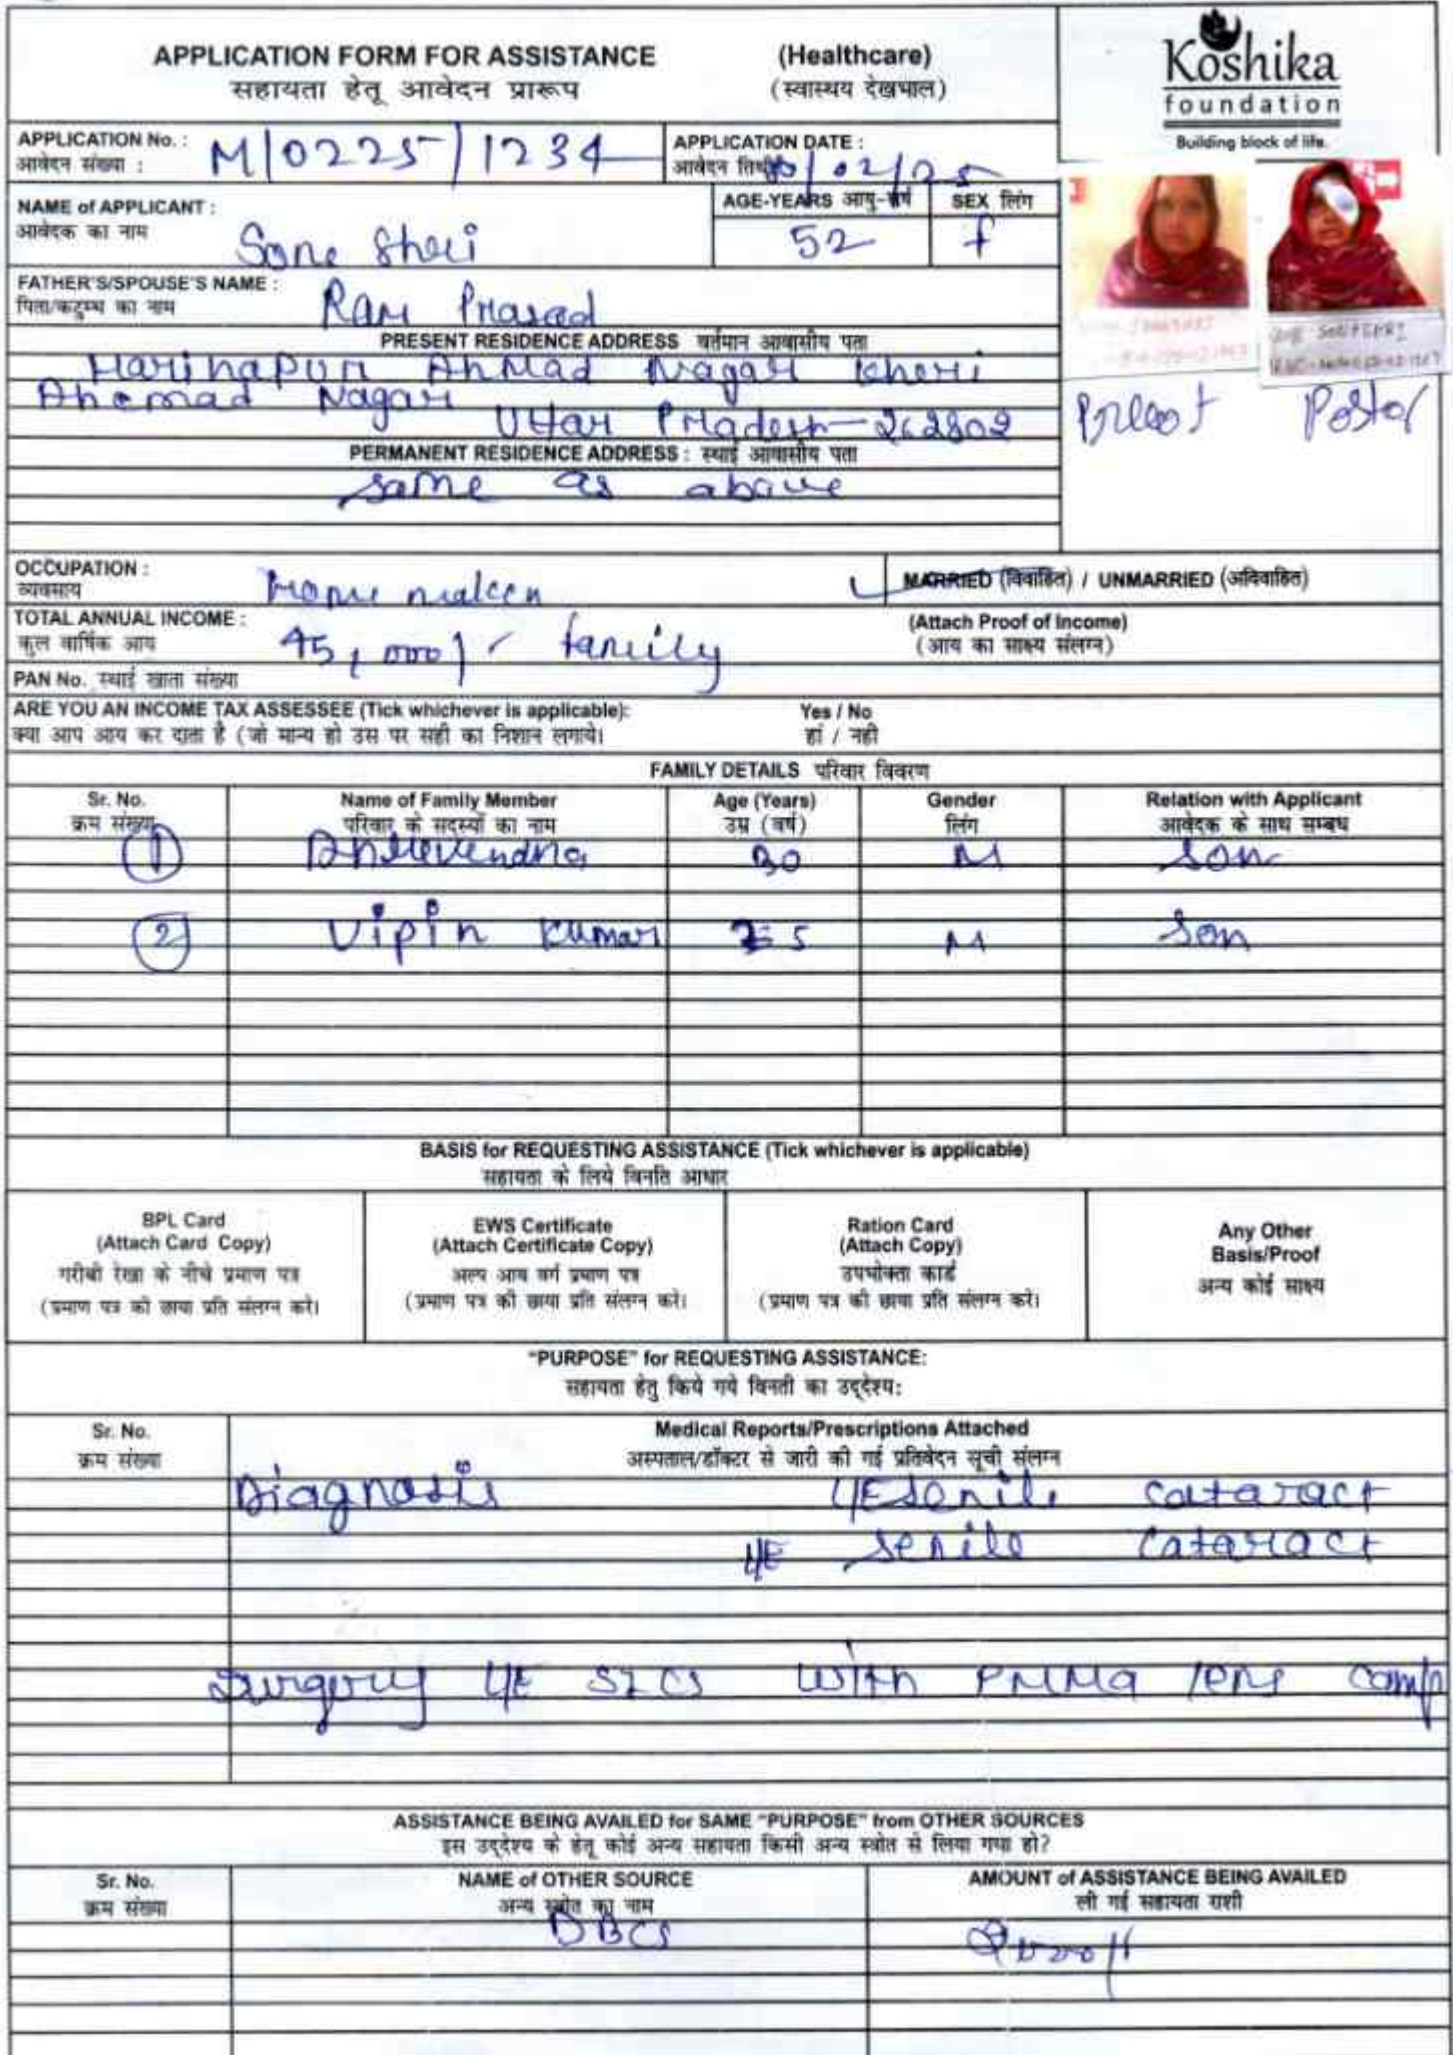 APPLICATION FORM FOR ASSISTANCE (Healthcare)
सहायता हेतू आवेदन प्रारूप (स्वास्थय देखभाल)
Koshika
foundation
Building block of life.
APPLICATION No. : M/0225/1234
आवेदन संख्या :
APPLICATION DATE :
आवेदन तिथी /02/25
NAME of APPLICANT : Sone Shri
आवेदक का नाम
AGE-YEARS आयु-वर्ष 52
SEX लिंग f
FATHER'S/SPOUSE'S NAME : Ram Prasad
पिता/कटुम्ब का नाम
PRESENT RESIDENCE ADDRESS वर्तमान आवासीय पता
Harinapur Ahmad Nagar Kheri
Ahemad Nagar Uttar Pradesh-262802
Preop Postop
PERMANENT RESIDENCE ADDRESS : स्थाई आवासीय पता
same as above
OCCUPATION : Home maker
व्यवसाय
MARRIED (विवाहित) / UNMARRIED (अविवाहित)
TOTAL ANNUAL INCOME : 45,000/- family
कुल वार्षिक आय
(Attach Proof of Income)
(आय का साक्ष्य संलग्न)
PAN No. स्थाई खाता संख्या
ARE YOU AN INCOME TAX ASSESSEE (Tick whichever is applicable): Yes / No
क्या आप आय कर दाता है (जो मान्य हो उस पर सही का निशान लगाये। हां / नही
FAMILY DETAILS परिवार विवरण
Sr. No. Name of Family Member Age (Years) Gender Relation with Applicant
क्रम संख्या परिवार के सदस्यों का नाम उम्र (वर्ष) लिंग आवेदक के साथ सम्बध
1 30 M Son
2 Vipin Kumar 25 M Son
BASIS for REQUESTING ASSISTANCE (Tick whichever is applicable)
सहायता के लिये विनति आधार
BPL Card
(Attach Card Copy)
गरीबी रेखा के नीचे प्रमाण पत्र
(प्रमाण पत्र की छाया प्रति संलग्न करे।
EWS Certificate
(Attach Certificate Copy)
अल्प आय वर्ग प्रमाण पत्र
(प्रमाण पत्र की छाया प्रति संलग्न करे।
Ration Card
(Attach Copy)
उपभोक्ता कार्ड
(प्रमाण पत्र की छाया प्रति संलग्न करे।
Any Other
Basis/Proof
अन्य कोई साक्ष्य
"PURPOSE" for REQUESTING ASSISTANCE:
सहायता हेतु किये गये विनती का उद्देश्य:
Sr. No. Medical Reports/Prescriptions Attached
क्रम संख्या अस्पताल/डॉक्टर से जारी की गई प्रतिवेदन सूची संलग्न
Diagnosis senile cataract
LE senile cataract
Surgery LE SICS with PMMA lens camp
ASSISTANCE BEING AVAILED for SAME "PURPOSE" from OTHER SOURCES
इस उद्देश्य के हेतू कोई अन्य सहायता किसी अन्य स्त्रोत से लिया गया हो?
Sr. No. NAME of OTHER SOURCE AMOUNT of ASSISTANCE BEING AVAILED
क्रम संख्या अन्य स्त्रोत का नाम ली गई सहायता राशी
DBCS